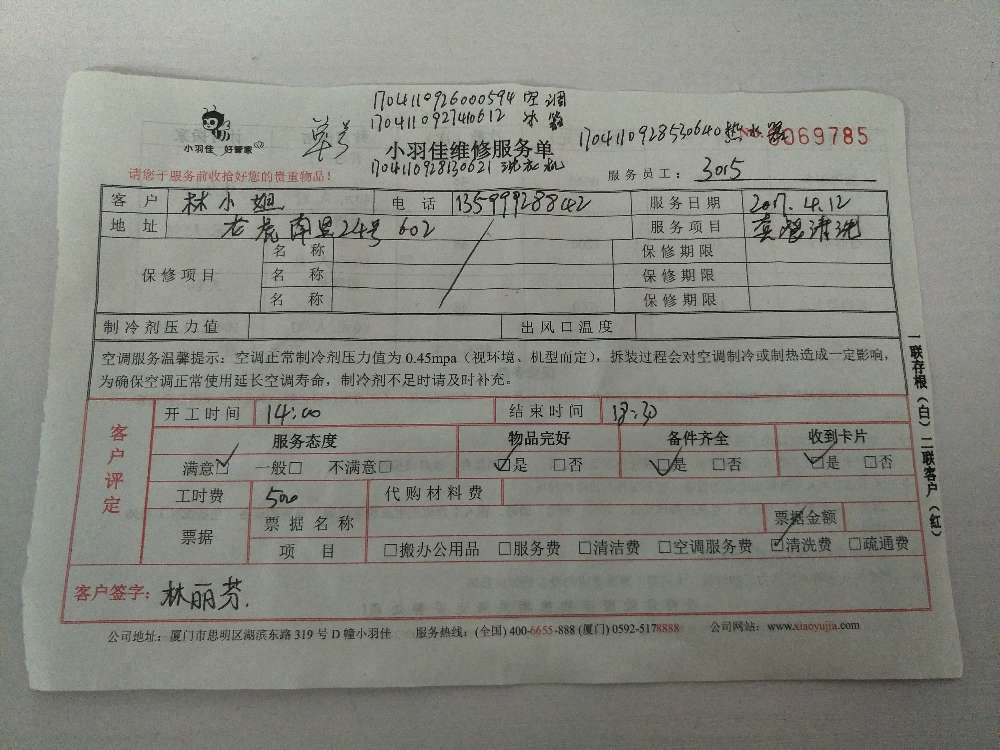 1704110926000594 空调
17041109927410612 冰箱
17041109928530640 热水器 0069785
小羽佳 好管家
小羽佳维修服务单
17041109928130621 洗衣机
请您于服务前收拾好您的贵重物品！
服务员工： 3015
客 户 林小姐 电 话 13599928842 服务日期 2017.4.12
地 址 老虎南里24号 602 服务项目 清洗
保修项目
名 称 保修期限
名 称 保修期限
名 称 保修期限
制冷剂压力值 出风口温度
空调服务温馨提示：空调正常制冷剂压力值为 0.45mpa（视环境、机型而定），拆装过程会对空调制冷或制热造成一定影响，
为确保空调正常使用延长空调寿命，制冷剂不足时请及时补充。
客户评定
开工时间 14:00 结束时间 18:30
服务态度 物品完好 备件齐全 收到卡片
满意□ 一般□ 不满意□ □是 □否 □是 □否 □是 □否
工时费 500 代购材料费
票据 票据名称 票据金额
项 目 □搬办公用品 □服务费 □清洁费 □空调服务费 □清洗费 □疏通费
客户签字： 林丽芬.
公司地址：厦门市思明区湖滨东路 319 号 D 幢小羽佳 服务热线：(全国) 400-6655-888 (厦门) 0592-5178888 公司网站：www.xiaoyujia.com
一联存根（白）二联客户（红）